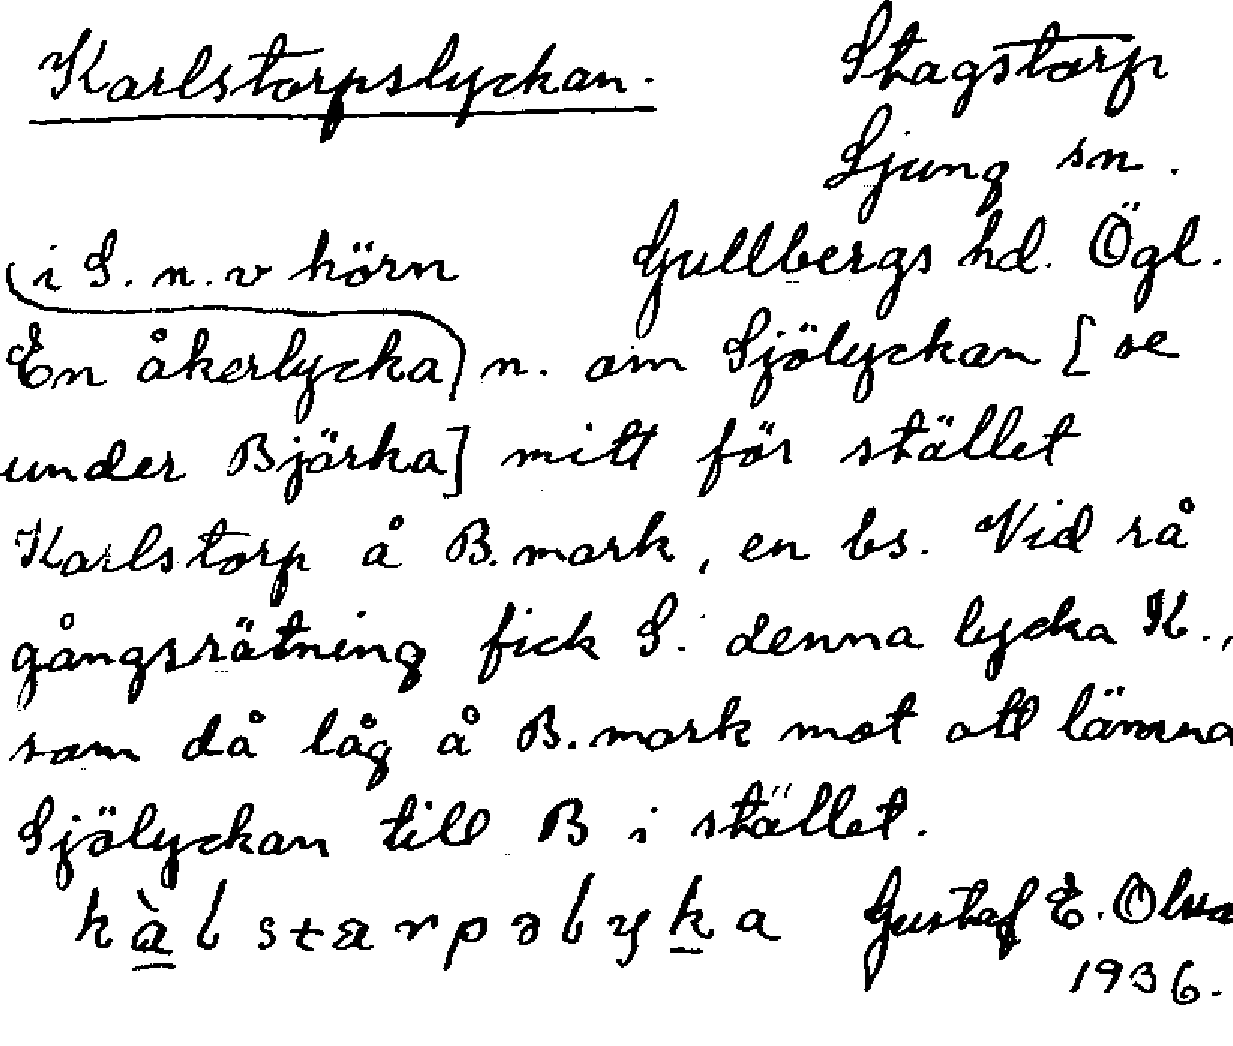 Karlstorpslyckan.
Stagstorp
Ljung sn.
Gullbergs hd. Ögl.
i S. n. v hörn
En åkerlycka n. om Sjölyckan [se
under Bjärka] mitt för stället
Karlstorp å B. mark, en bs. Vid rå
gångsrätning fick S. denna lycka K.,
som då låg å B. mark mot att lämna
Sjölyckan till B i stället.
Gustaf E. Olss
1936.